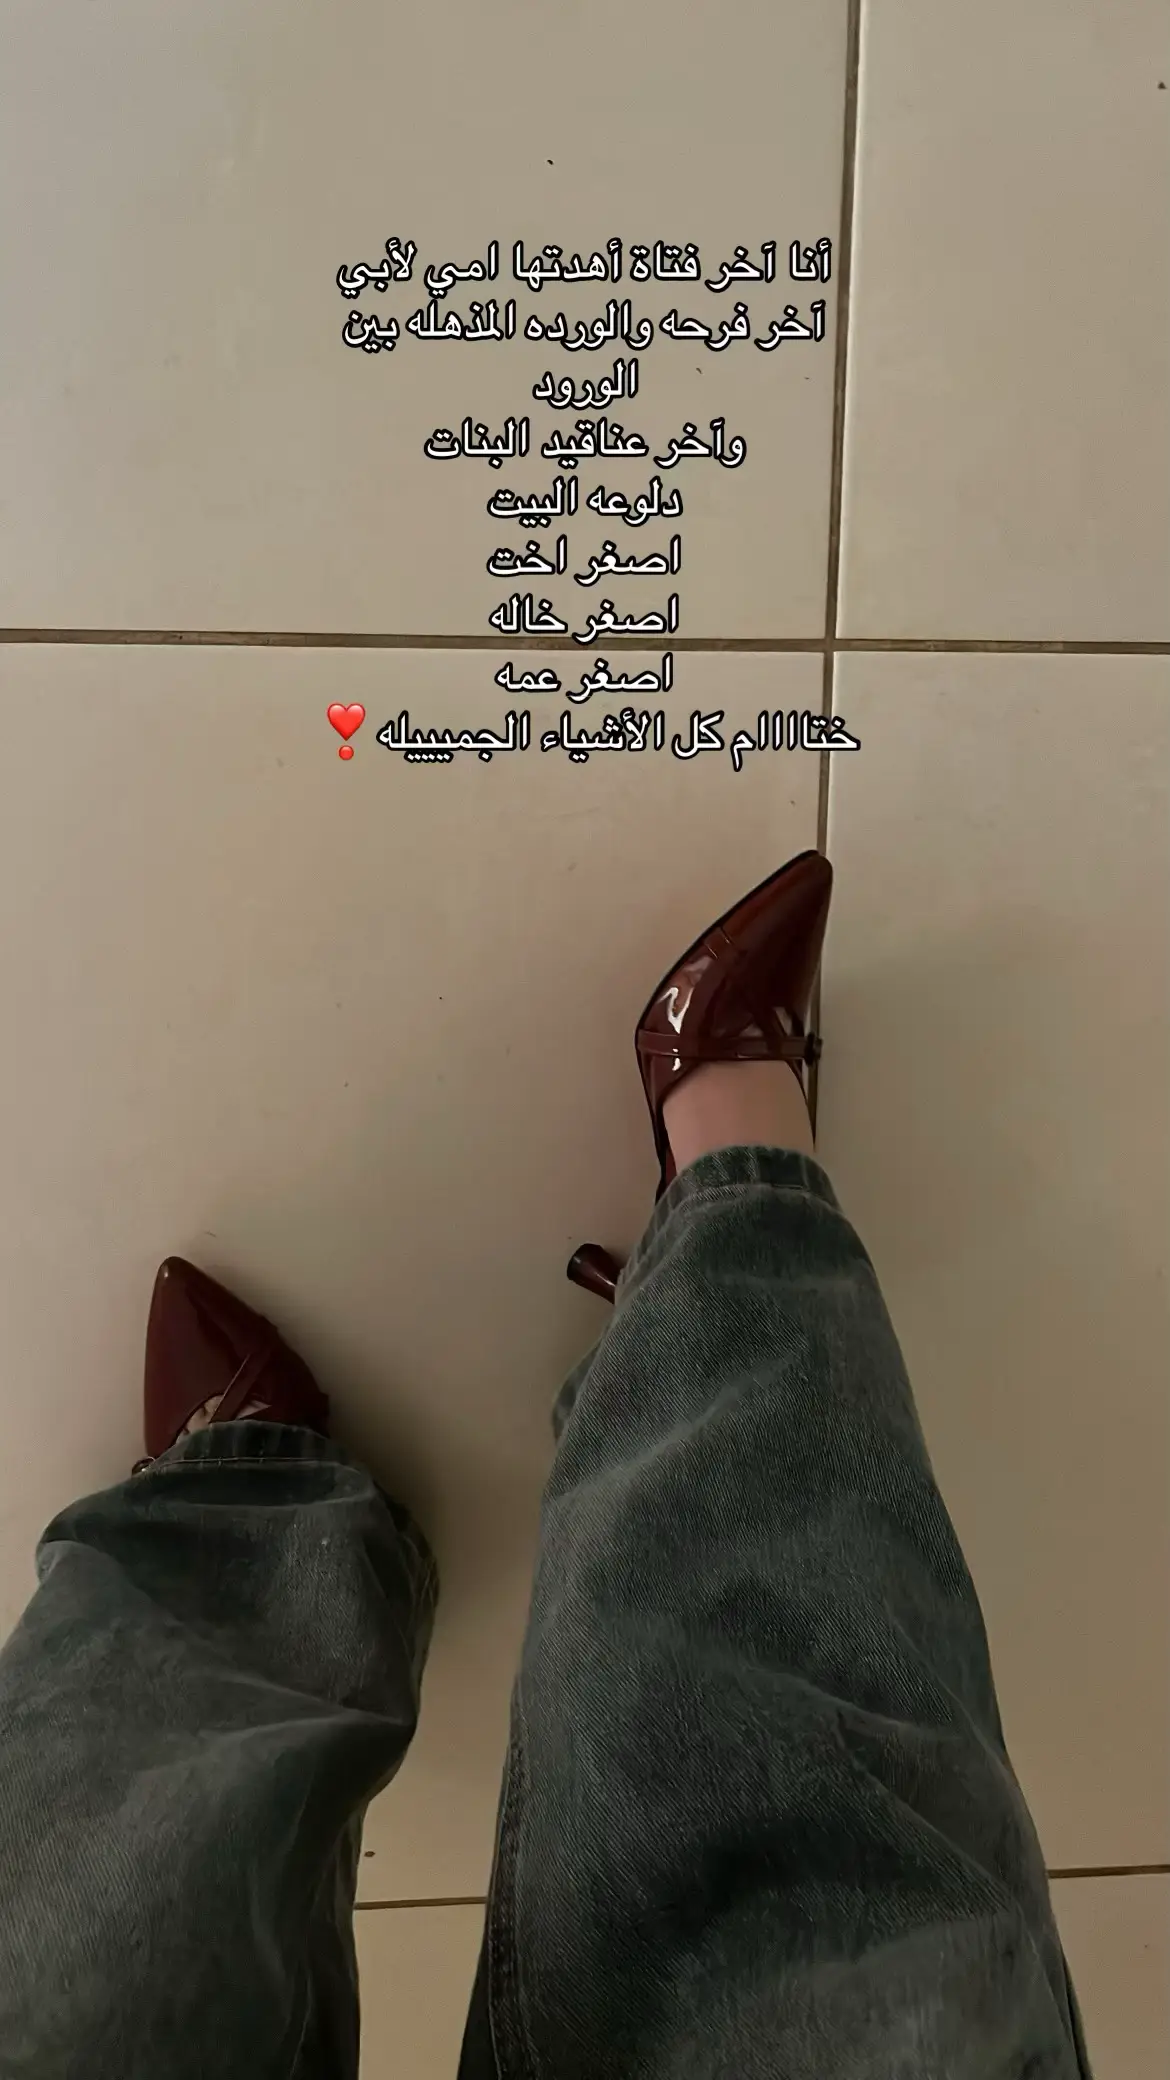 أنا آخر فتاة أهدتها امي لأبي
آخر فرحه والورده المذهله بين
الورود
وآخر عناقيد البنات
دلوعه البيت
اصغر اخت
اصغر خاله
اصغر عمه
ختاااام كل الأشياء الجمييييله ❣️